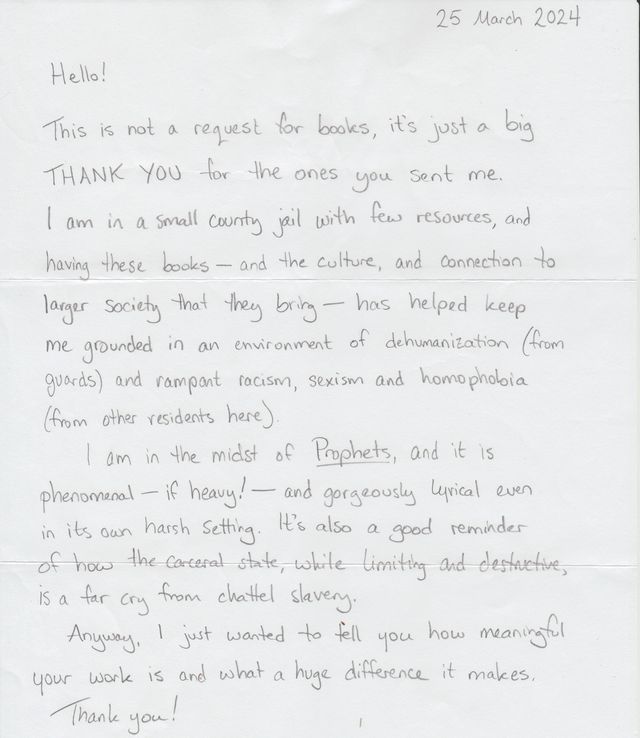 25 March 2024
Hello!
This is not a request for books, it's just a big
THANK YOU for the ones you sent me.
I am in a small county jail with few resources, and
having these books — and the culture, and connection to
larger society that they bring — has helped keep
me grounded in an environment of dehumanization (from
guards) and rampant racism, sexism and homophobia
(from other residents here).
I am in the midst of Prophets, and it is
phenomenal — if heavy! — and gorgeously lyrical even
in its own harsh setting. It's also a good reminder
of how the carceral state, while limiting and destructive,
is a far cry from chattel slavery.
Anyway, I just wanted to tell you how meaningful
your work is and what a huge difference it makes.
Thank you!